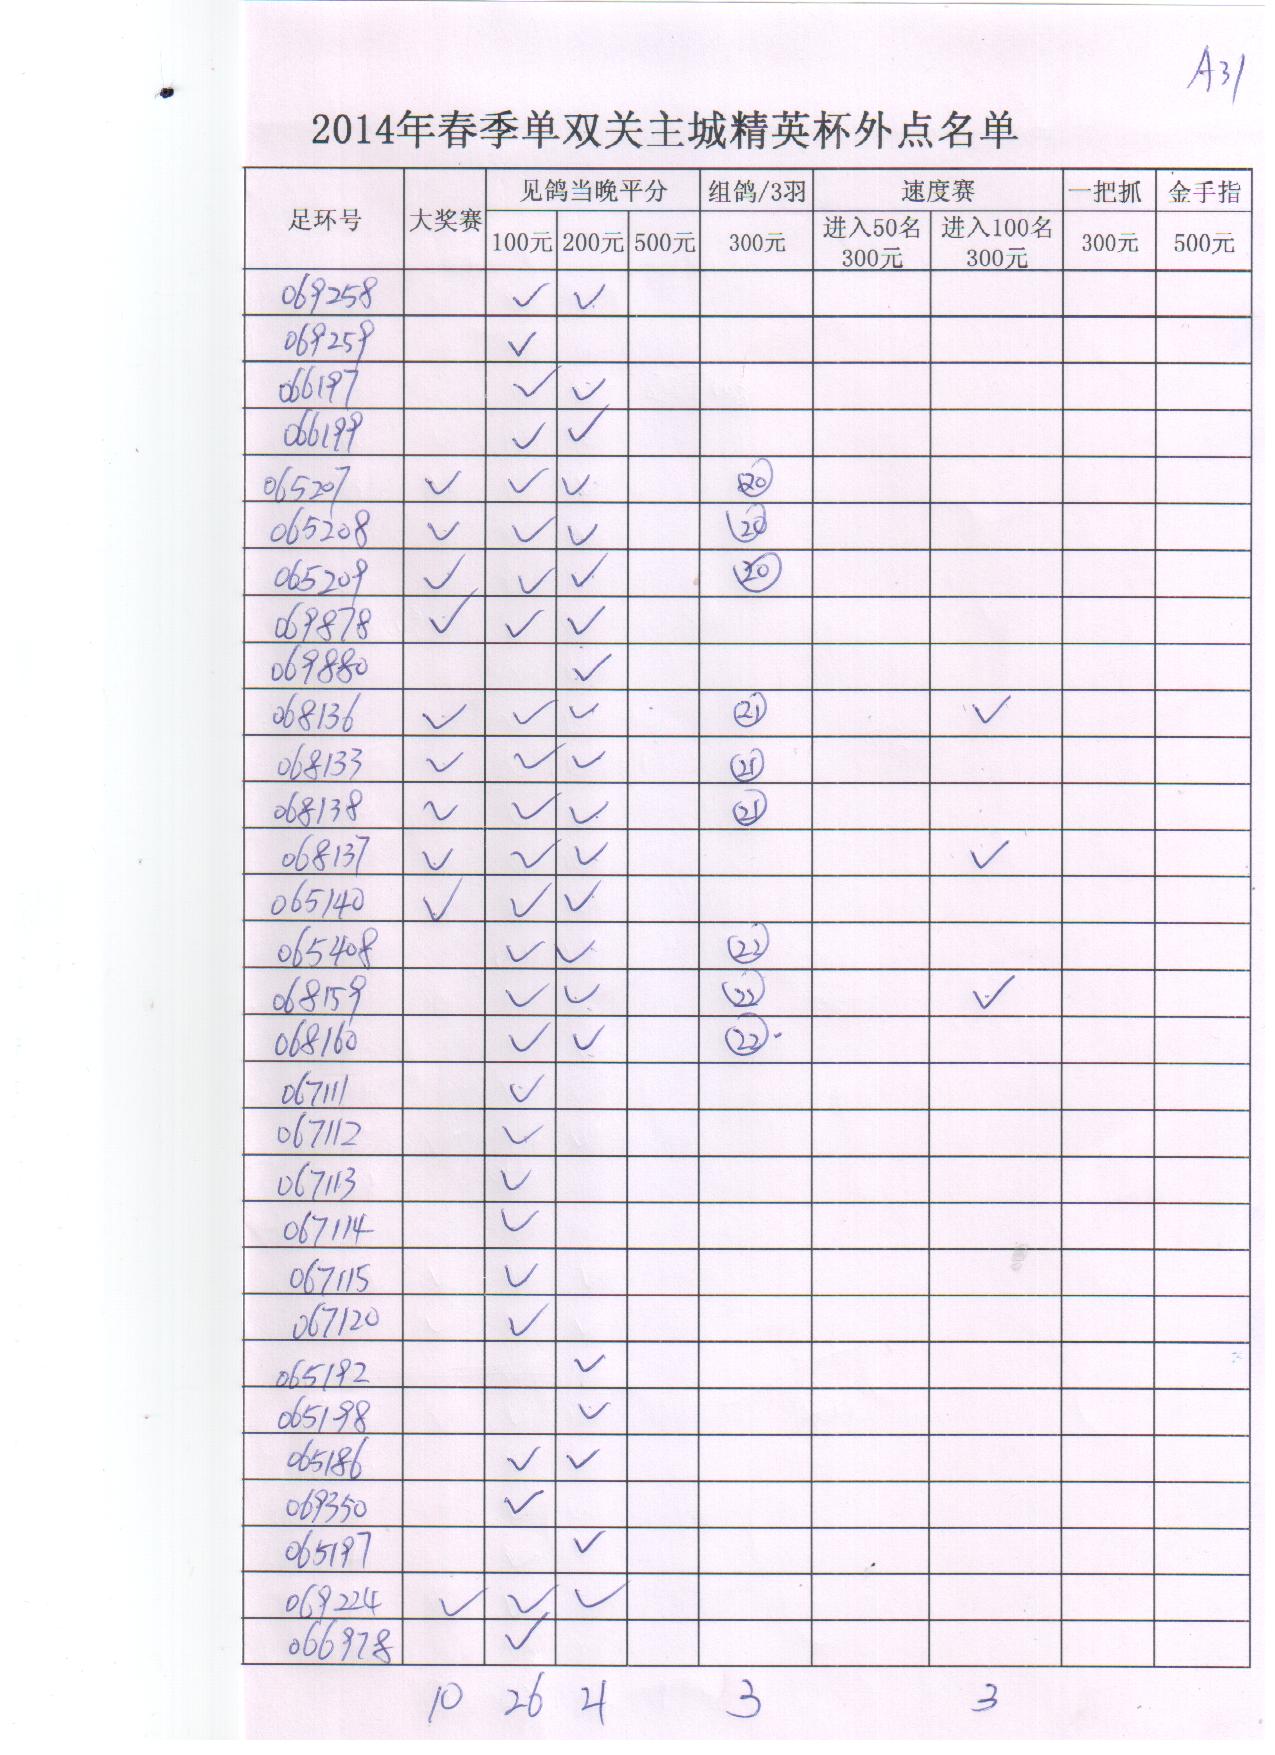 A31
2014年春季单双关主城精英杯外点名单
足环号 大奖赛 见鸽当晚平分 组鸽/3羽 速度赛 一把抓 金手指
100元 200元 500元 300元 进入50名 300元 进入100名 300元 300元 500元
069258 ✓ ✓
069259 ✓
066197 ✓ ✓
066199 ✓ ✓
065207 ✓ ✓ ✓ ⑳
065208 ✓ ✓ ✓ ⑳
065209 ✓ ✓ ✓ ⑳
069878 ✓ ✓ ✓
069880 ✓
068136 ✓ ✓ ✓ ㉑ ✓
068133 ✓ ✓ ✓ ㉑
068138 ✓ ✓ ✓ ㉑
068137 ✓ ✓ ✓ ✓
065140 ✓ ✓ ✓
065408 ✓ ✓ ㉒
068159 ✓ ✓ ㉒ ✓
068160 ✓ ✓ ㉒
067111 ✓
067112 ✓
067113 ✓
067114 ✓
067115 ✓
067120 ✓
065192 ✓
065198 ✓
065186 ✓ ✓
069350 ✓
065197 ✓
069224 ✓ ✓ ✓
066978 ✓
10 26 21 3 3